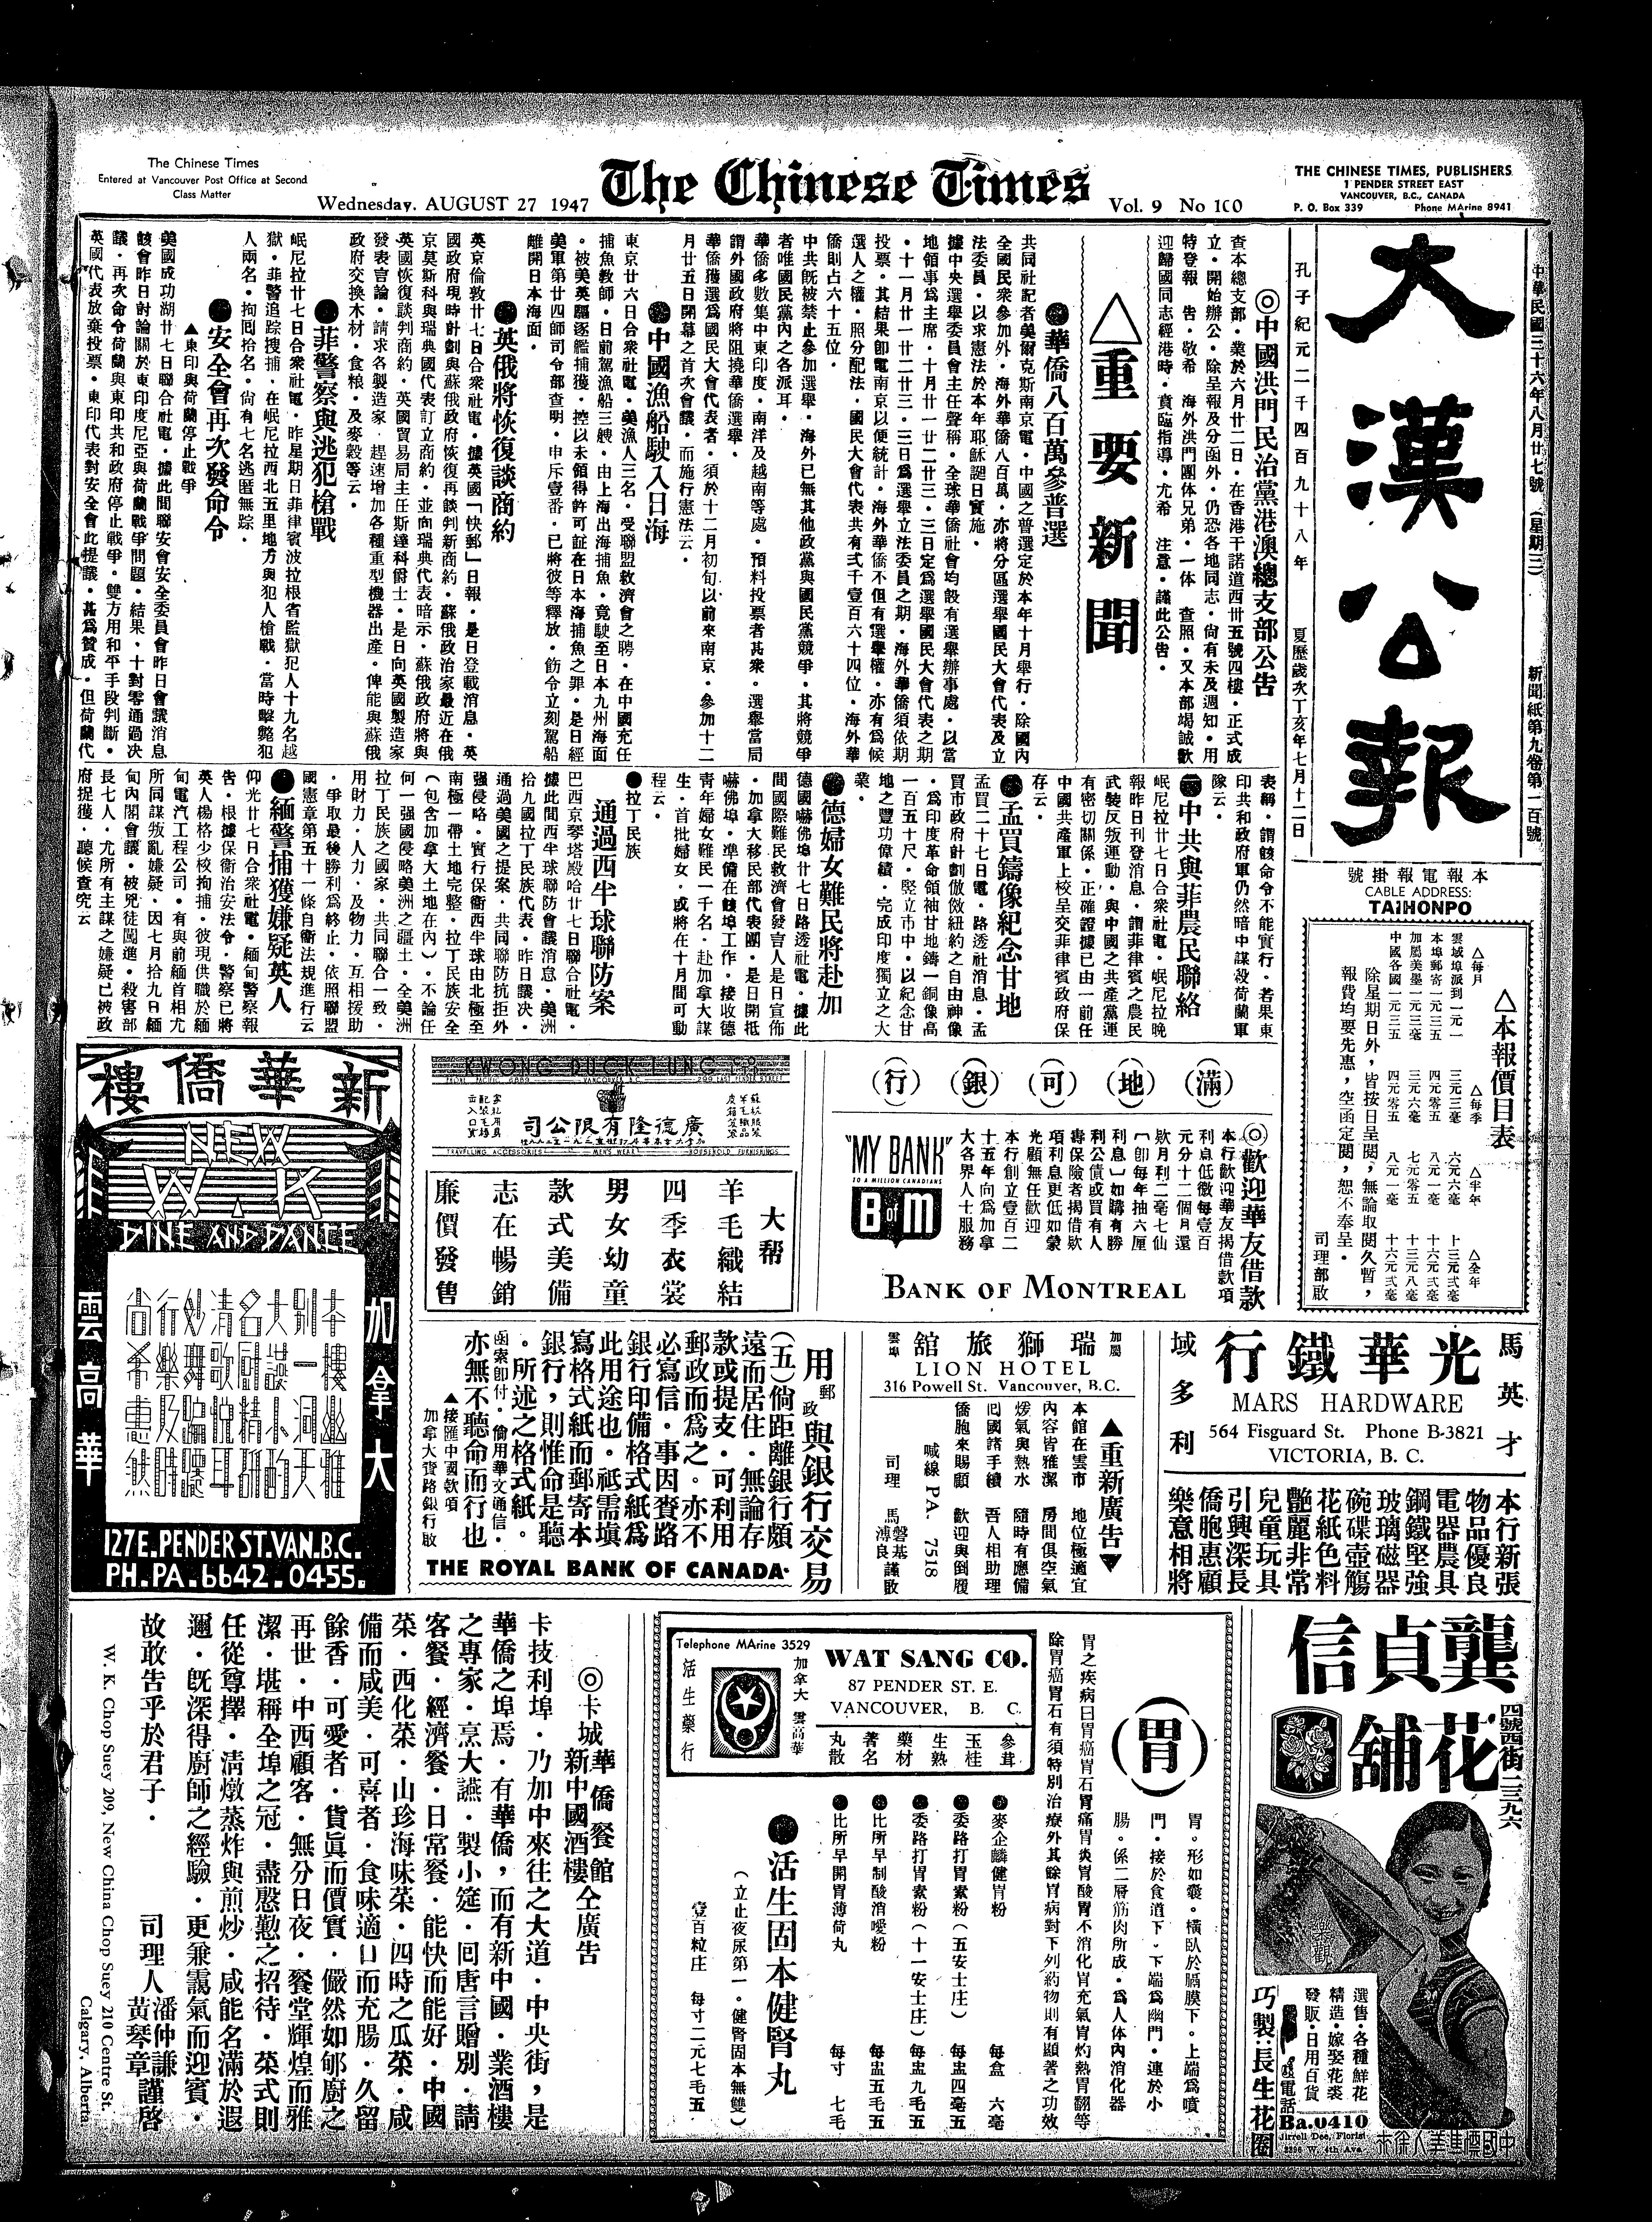 The Chinese Times
Entered at Vancouver Post Office at Second
Class Matter
Wednesday. AUGUST 27 1947
The Chinese Times
Vol. 9 No 100
THE CHINESE TIMES, PUBLISHERS
1 PENDER STREET EAST
VANCOUVER, B.C., CANADA
P. O. Box 339 Phone MArine 8941
中華民國三十六年八月廿七號 (星期三)
新聞紙第九卷第一百號
大漢公報
孔子紀元二千四百九十八年
夏歷歲次丁亥年七月十二日
本報電報掛號
CABLE ADDRESS:
TAIHONPO
△本報價目表
△每月 △每季 △半年 △全年
除星期日外，皆按日呈閱，無論取閱久暫，
報費均要先惠，空函定閱，恕不奉呈。
司理部啟
◎中國洪門民治黨港澳總支部公告
查本總支部・業於六月廿二日・在香港干諾道西卅五號四樓・正式成
立・開始辦公・除呈報及分函外・仍恐各地同志・尙有未及週知・用
特登報　告・敬希　海外洪門團体兄弟・一体　查照・又本部竭誠歡
迎歸國同志經港時・賁臨指導・尤希　注意・謹此公告・
△重要新聞
●華僑八百萬參普選
共同社記者美爾克斯南京電・中國之普選定於本年十月舉行・除國內
全國民衆參加外・海外華僑八百萬・亦將分區選舉國民大會代表及立
法委員・以求憲法於本年耶穌誕日實施・
據中央選舉委員會主任聲稱・全球華僑社會均設有選舉辦事處・以當
地領事爲主席・十月廿一廿二廿三・三日定爲選舉國民大會代表之期
・十一月廿一廿二廿三・三日爲選舉立法委員之期・海外華僑須依期
投票・其結果卽電南京以便統計・海外華僑不但有選舉權・亦有爲候
選人之權・照分配法・國民大會代表共有弍千壹百六十四位・海外華
僑則占六十五位・
中共旣被禁止參加選舉・海外已無其他政黨與國民黨競爭・其將競爭
者唯國民黨內之各派耳・
華僑多數集中東印度・南洋及越南等處・預料投票者甚衆・選舉當局
謂外國政府將阻撓華僑選舉・
華僑獲選爲國民大會代表者・須於十二月初旬以前來南京・參加十二
月廿五日開幕之首次會議・而施行憲法云・
●中國漁船駛入日海
東京廿六日合衆社電・美漁人三名・受聯盟救濟會之聘・在中國充任
捕魚教師・日前駕漁船三艘・由上海出海捕魚・竟駛至日本九州海面
・被美英驅逐艦捕獲・控以未領得許可証在日本海捕魚之罪・是日經
美軍第廿四師司令部查明・申斥壹番・已將彼等釋放・飭令立刻駕船
離開日本海面・
●英俄將恢復談商約
英京倫敦廿七日合衆社電・據英國「快郵」日報・是日登載消息・英
國政府現時計劃與蘇俄政府恢復再談判新商約・蘇俄政治家最近在俄
京莫斯科與瑞典國代表訂立商約・並向瑞典代表暗示・蘇俄政府將與
英國恢復談判商約・英國貿易局主任斯達科爵士・是日向英國製造家
發表言論・請求各製造家・趕速增加各種重型機器出產・俾能與蘇俄
政府交換木材・食粮・及麥穀等云・
●菲警察與逃犯槍戰
岷尼拉廿七日合衆社電・昨星期日菲律賓波拉根省監獄犯人十九名越
獄・菲警追踪搜捕・在岷尼拉西北五里地方與犯人槍戰・當時擊斃犯
人兩名・拘囘拾名・尙有七名逃匿無踪・
●安全會再次發命令
▲東印與荷蘭停止戰爭
美國成功湖廿七日聯合社電・據此間聯安會安全委員會昨日會議消息
該會昨日討論關於東印度尼亞與荷蘭戰爭問題・結果・十對零通過決
議・再次命令荷蘭與東印共和政府停止戰爭・雙方用和平手段判斷・
英國代表放棄投票・東印代表對安全會此提議・甚爲贊成・但荷蘭代
表稱・謂該命令不能實行・若果東
印共和政府軍仍然暗中謀殺荷蘭軍
隊云・
●中共與菲農民聯絡
岷尼拉廿七日合衆社電・岷尼拉晚
報昨日刊登消息・謂菲律賓之農民
武裝反叛運動・與中國之共產黨運
有密切關係・正確證據已由一前任
中國共產軍上校呈交菲律賓政府保
存云・
●孟買鑄像紀念甘地
孟買二十七日電・路透社消息・孟
買市政府計劃倣做紐約之自由神像
・爲印度革命領袖甘地鑄一銅像高
一百五十尺・竪立市中・以紀念甘
地之豐功偉績・完成印度獨立之大
業・
●德婦女難民將赴加
德國嚇佛埠廿七日路透社電・據此
間國際難民救濟會發言人是日宣佈
・加拿大移民部代表團・是日開抵
嚇佛埠・準備在該埠工作・接收德
靑年婦女難民一千名・赴加拿大謀
生・首批婦女・或將在十月間可動
程云・
●拉丁民族
通過西半球聯防案
巴西京琴塔殿哈廿七日聯合社電・
據此間西半球聯防會議消息・美洲
拾九國拉丁民族代表・昨日議决・
通過美國之提案・共同聯防抗拒外
强侵略・實行保衛西半球由北極至
南極一帶土地完整・拉丁民族安全
(包含加拿大土地在內)・不論任
何一强國侵略美洲之疆土・全美洲
拉丁民族之國家・共同聯合一致・
用財力・人力・及物力・互相援助
・爭取最後勝利爲終止・依照聯盟
國憲章第五十一條自衛法規進行云
●緬警捕獲嫌疑英人
仰光廿七日合衆社電・緬甸警察報
告・根據保衛治安法令・警察已將
英人楊格少校拘捕・彼現供職於緬
甸電汽工程公司・有與前緬首相尤
所同謀叛亂嫌疑・因七月拾九日緬
甸內閣會議・被兇徒闖進・殺害部
長七人・尤所有主謀之嫌疑已被政
府捉獲・聽候查究云
新華僑樓
NEW W.K
DINE AND DANCE
加拿大
雲高華
127 E. PENDER ST. VAN. B.C.
PH. PA. 6642. 0455.
KWONG DUCK LUNG CO
廣德隆有限公司
TRAVELLING ACCESSORIES MEN'S WEAR HOUSEHOLD FURNISHINGS
大帮
羊毛織結
四季衣裳
男女幼童
款式美備
志在暢銷
廉價發售
(滿)(地)(可)(銀)(行)
◎歡迎華友借款
本行歡迎華友揭借款項
利息低微每壹百
元分十二個月還
欵月利二毫七仙
(卽每年抽六厘
利息)如購有勝
利公債或買有人
壽保險者揭借欵
項利息更低如蒙
光顧無任歡迎
本行創立壹百二
十五年向爲加拿
大各界人士服務
"MY BANK"
TO A MILLION CANADIANS
B of M
BANK OF MONTREAL
用郵政與銀行交易
(五)倘距離銀行頗
遠而居住・無論存
款或提支・可利用
郵政而爲之。亦不
必寫信・事因賫路
銀行印備格式紙爲
此用途也。祗需塡
寫格式紙而郵寄本
銀行，則惟命是聽
。所述之格式紙。
函索卽付・倘用華文通信・
亦無不聽命而行也
▲接匯中國欵項
加拿大賫路銀行啟
THE ROYAL BANK OF CANADA
加屬
雲埠
瑞獅旅舘
LION HOTEL
316 Powell St. Vancouver, B.C.
▲重新廣告▼
本館在雲市　地位極適宜
內容皆雅潔　房間俱空氣
煖氣與熱水　隨時有應備
囘國諸手續　吾人相助理
僑胞來賜顧　歡迎與倒履
喊線 PA. 7518
司理 馬磐基 溥良 謹啟
馬英才
域多利
光華鐵行
MARS HARDWARE
564 Fisguard St. Phone B-3821
VICTORIA, B. C.
本行新張
物品優良
電器農具
鋼鐵堅強
玻璃磁器
碗碟壺觴
花紙色料
艷麗非常
兒童玩具
引興深長
僑胞惠顧
樂意相將
◎卡城華僑餐館新中國酒樓仝廣告
卡技利埠・乃加中來往之大道・中央街，是
華僑之埠焉・有華僑，而有新中國・業酒樓
之專家・烹大讌・製小筵・囘唐言贈別・請
客餐・經濟餐・日常餐・能快而能好・中國
菜・西化菜・山珍海味菜・四時之瓜菜・咸
備而咸美・可喜者・食味適口而充腸・久留
餘香・可愛者・貨眞而價實・儼然如郇廚之
再世・中西顧客・無分日夜・餐堂輝煌而雅
潔・堪稱全埠之冠・盡慇懃之招待・菜式則
任從尊擇・淸燉蒸炸與煎炒・咸能名滿於遐
邇・旣深得廚師之經驗・更兼靄氣而迎賓・
故敢告乎於君子・
司理人 潘仲謙 黃琴章 謹啓
W. K. Chop Suey 209, New China Chop Suey 210 Centre St.
Calgary, Alberta
Telephone MArine 3529
WAT SANG CO.
87 PENDER ST. E.
VANCOUVER, B. C.
加拿大 雲高華
活生藥行
參茸 玉桂 生熟 藥材 著名 丸散
(胃)
胃。形如囊。橫臥於膈膜下。上端爲噴
門・接於食道下・下端爲幽門・連於小
腸。係二層筋肉所成・爲人体內消化器
胃之疾病曰胃癌胃石胃痛胃炎胃酸胃不消化胃充氣胃灼熱胃翻等
除胃癌胃石有須特別治療外其餘胃病對下列葯物則有顯著之功效
●麥企麟健胃粉 每盒 六毫
●委路打胃素粉(五安士庄) 每盅四毫五
●委路打胃素粉(十一安士庄) 每盅九毛五
●比所早制酸消噯粉 每盅五毛五
●比所早開胃薄荷丸 每寸 七毛
●活生固本健腎丸
(立止夜尿第一・健腎固本無雙)
壹百粒庄 每寸二元七毛五
龔貞信花舖
四號西街二三九六
選售・各種鮮花
精造・嫁娶花裘
發販・日用百貨
巧製：長生花圈
電話
Ba.0410
Jirrell Dee, Florist
2396 W. 4th Ave.